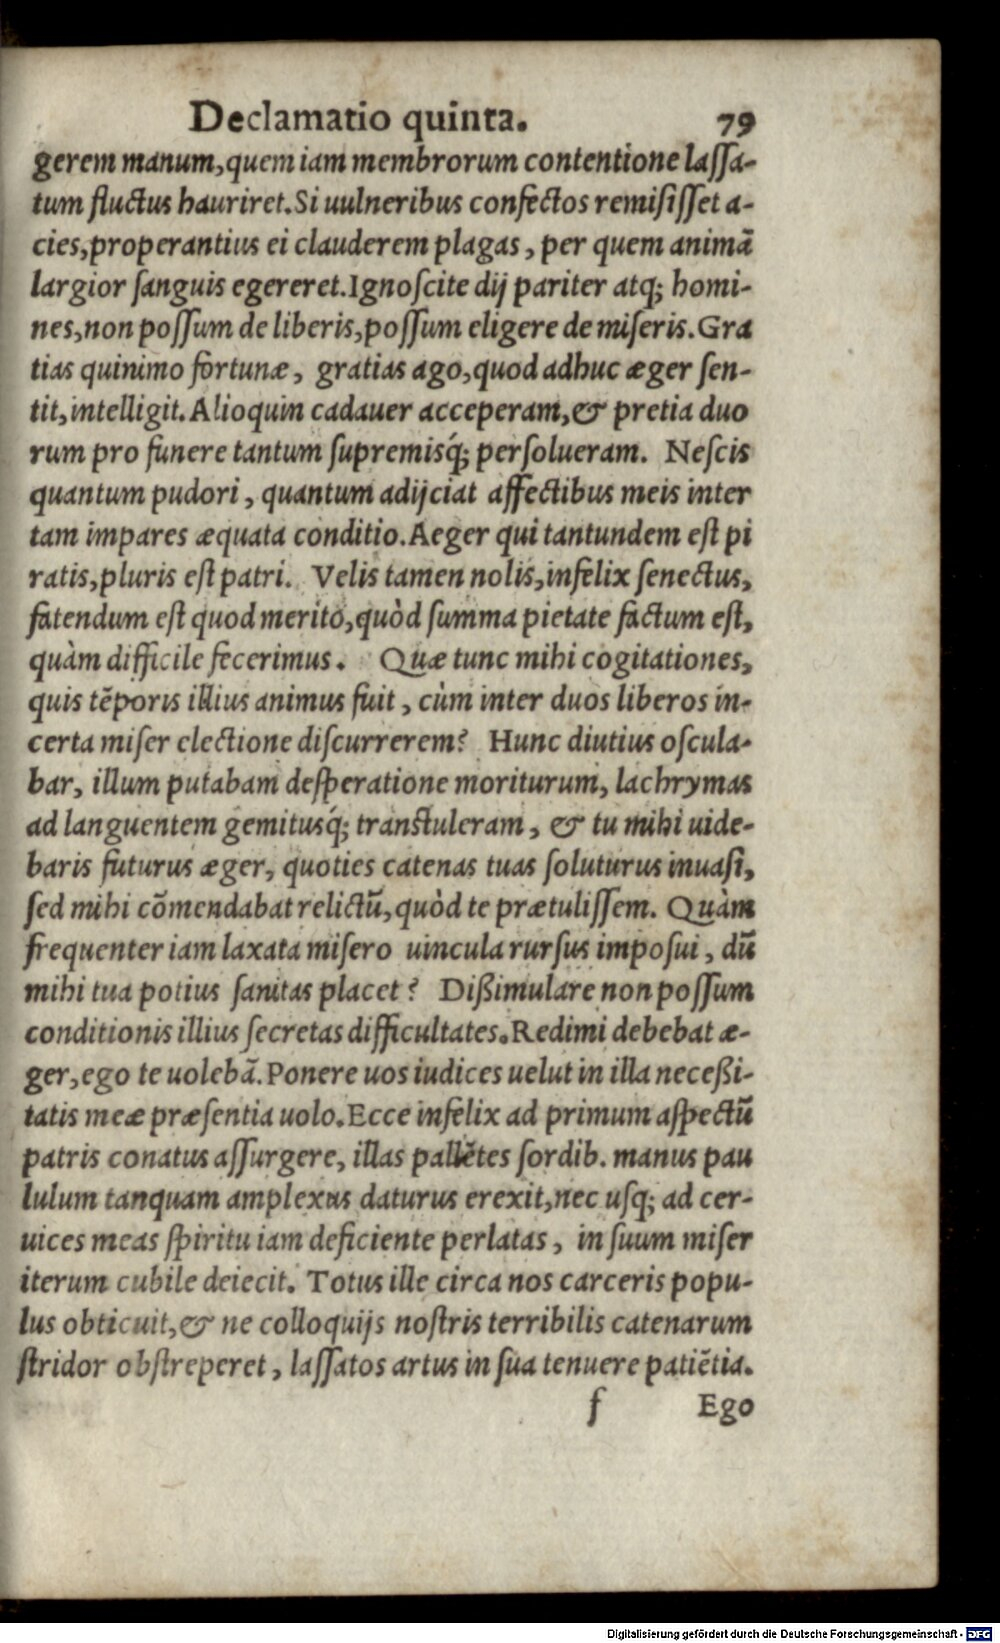 Declamatio quinta. 79
gerem manum,quem iam membrorum contentione laſſa-
tum fluctus hauriret.Si uulneribus confectos remiſiſſet a-
cies,properantius ei clauderem plagas, per quem animā
largior ſanguis egereret.Ignoſcite dij pariter atq; homi-
nes,non poſſum de liberis,poſſum eligere de miſeris.Gra
tias quinimo fortunæ, gratias ago,quod adhuc æger ſen-
tit,intelligit.Alioquin cadauer acceperam,& pretia duo
rum pro funere tantum ſupremisq́; perſolueram. Neſcis
quantum pudori, quantum adijciat affectibus meis inter
tam impares æquata conditio.Aeger qui tantundem eſt pi
ratis,pluris eſt patri. Velis tamen nolis,infelix ſenectus,
fatendum eſt quod merito,quòd ſumma pietate factum eſt,
quàm difficile fecerimus. Quæ tunc mihi cogitationes,
quis tēporis illius animus fuit, cùm inter duos liberos in-
certa miſer electione diſcurrerem? Hunc diutius oſcula-
bar, illum putabam deſperatione moriturum, lachrymas
ad languentem gemitusq́; transtuleram, & tu mihi uide-
baris futurus æger, quoties catenas tuas ſoluturus inuaſi,
ſed mihi cōmendabat relictū,quòd te prætuliſſem. Quàm
frequenter iam laxata miſero uincula rurſus impoſui, dū
mihi tua potius ſanitas placet? Dißimulare non poſſum
conditionis illius ſecretas difficultates.Redimi debebat æ-
ger,ego te uolebā.Ponere uos iudices uelut in illa neceßi-
tatis meæ præſentia uolo.Ecce infelix ad primum aſpectū
patris conatus aſſurgere, illas pallētes ſordib. manus pau
lulum tanquam amplexus daturus erexit,nec uſq; ad cer-
uices meas ſpiritu iam deficiente perlatas, in ſuum miſer
iterum cubile deiecit. Totus ille circa nos carceris popu-
lus obticuit,& ne colloquijs noſtris terribilis catenarum
ſtridor obſtreperet, laſſatos artus in ſua tenuere patiētia.
f Ego
Digitalisierung gefördert durch die Deutsche Forschungsgemeinschaft - DFG